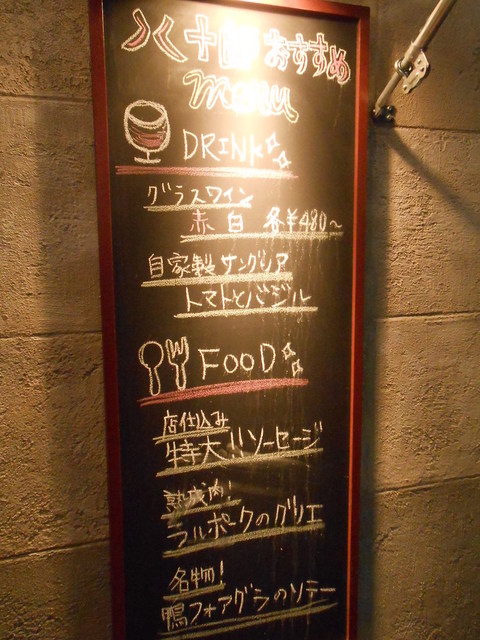 八十郎おすすめ
menu
DRINK
グラスワイン
赤 白 各¥480〜
自家製サングリア
トマトとバジル
FOOD
店仕込み
特大!!ソーセージ
熟成肉!
フルポークのグリエ
名物!
鴨フォアグラのソテー